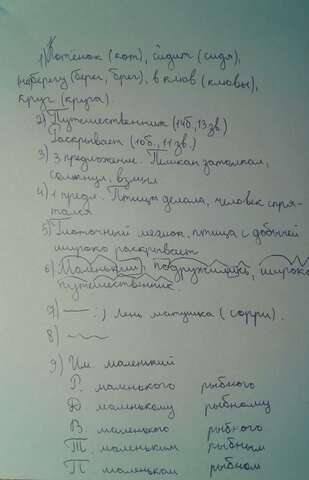 1) Котёнок (кот), сидит (сидя),
на берегу (берег, брег), в клюв (клювы),
круг (круга).
2) Путешественник (14б, 13 зв.)
Раскрывает (10б., 11 зв.)
3) 3 предложение. Пеликан затолкал,
сомкнул, взмыл
4) 1 предл. Птицы делала, человек спря-
тался
5) Глоточный мешок, птица с добычей
широко раскрывает
6) Маленький, подружились, широко
путешественник.
7) — : ) лень матушка (сорри).
8)
9) Им. маленький
Р. маленького рыбного
Д. маленькому рыбному
В. маленького рыбного
Т. маленьким рыбным
П. маленьком рыбном